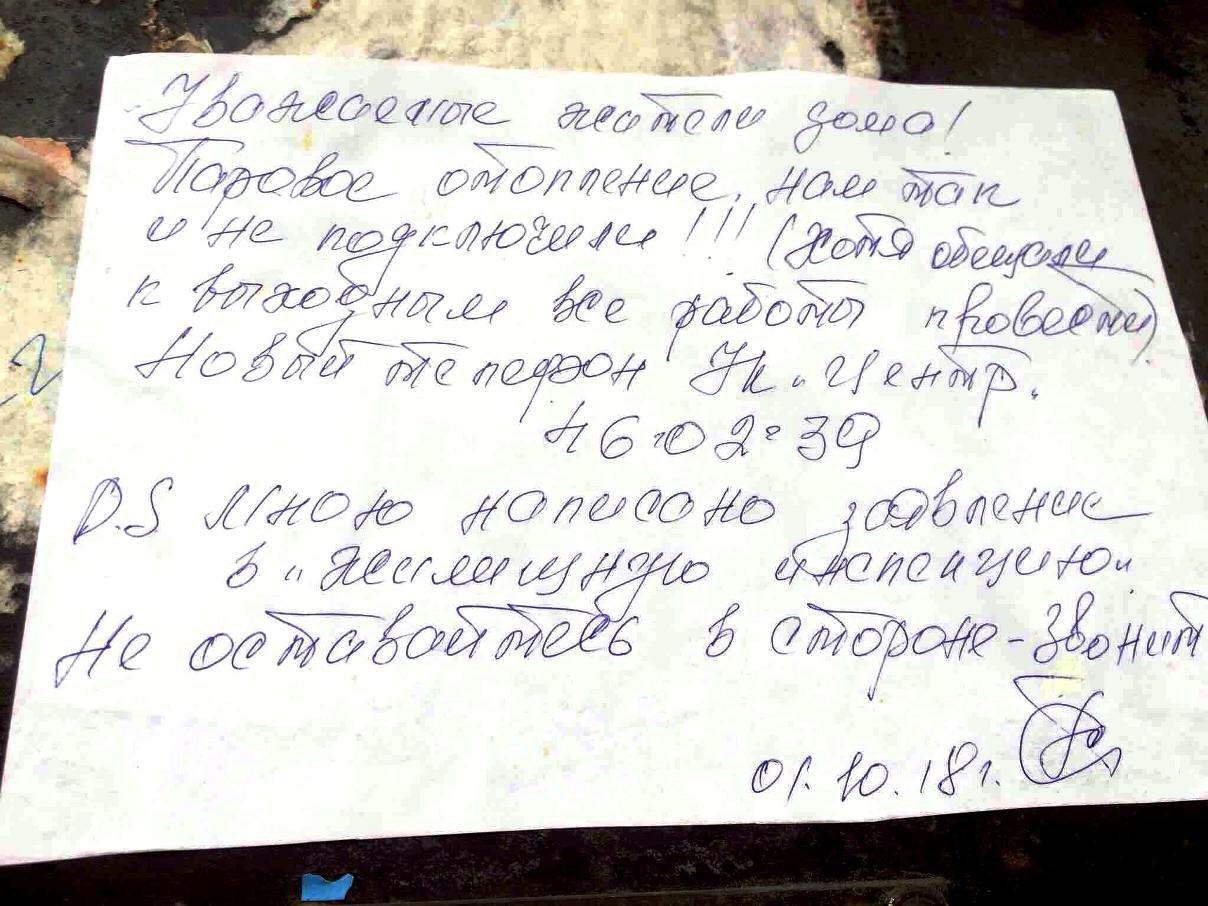 Уважаемые жители дома!
Паровое отопление, нам так
и не подключили!!! (хотя обещали
к выходным все работы провести)
Новый телефон Ук „Центр"
46-02-39
P.S Мною написано заявление
в „жилищную инспекцию"
Не оставайтесь в стороне - звонит
01.10.18г.